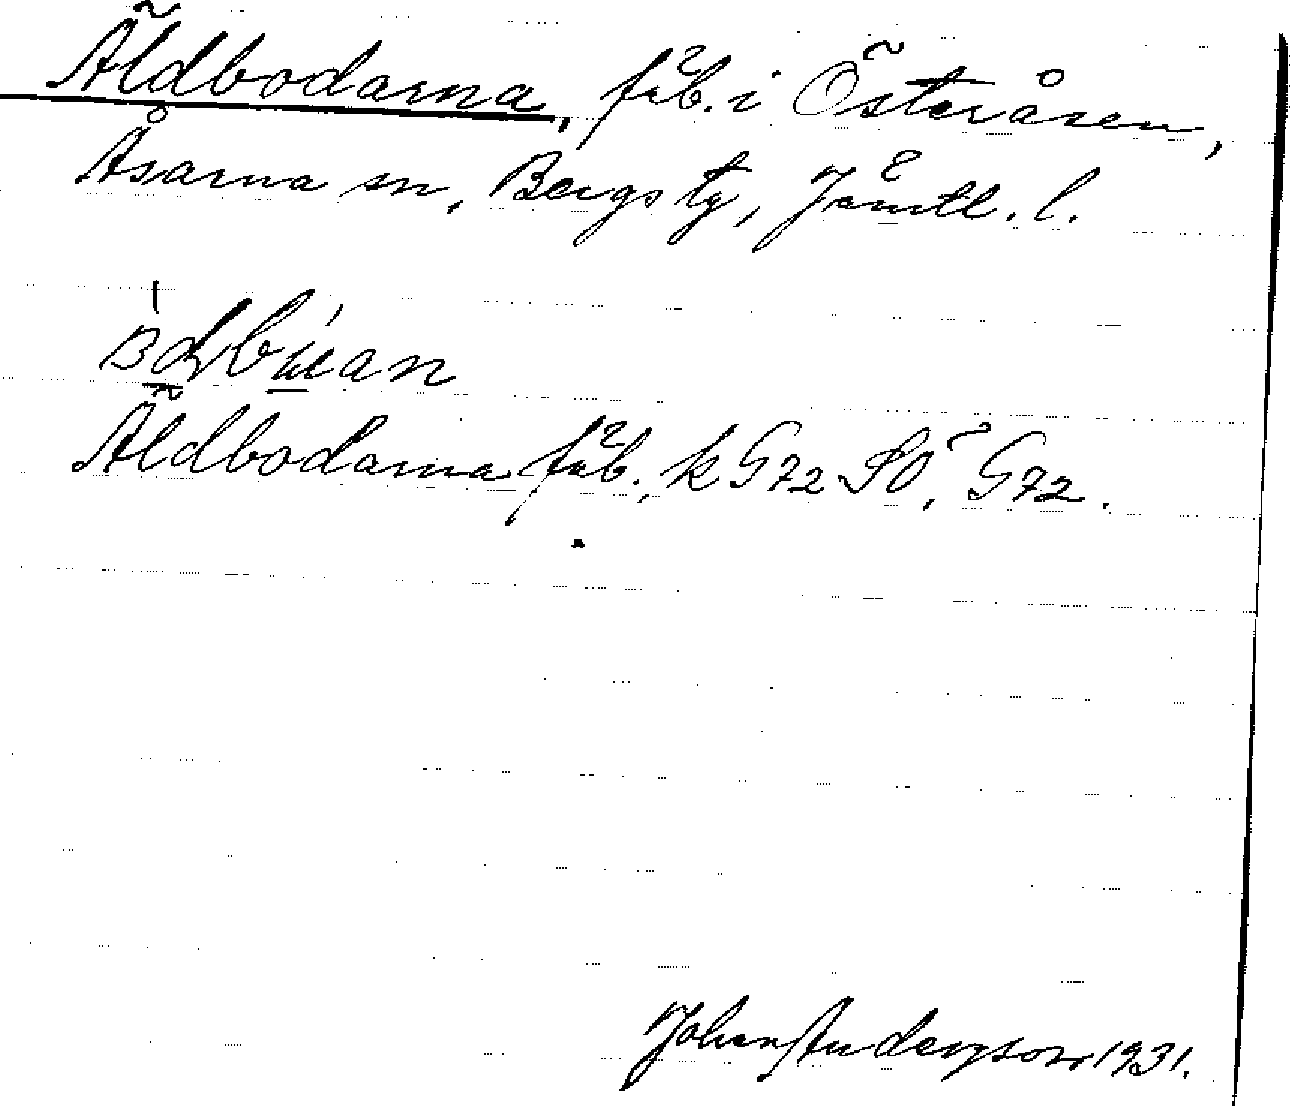 Äldbodarna, fäb. i Österåsen,
Åsarna sn, Bergs tg, Jämtl. l.
Äldbodarna fäb., k G72 SÖ, G72.
Johan Anderson 1931.